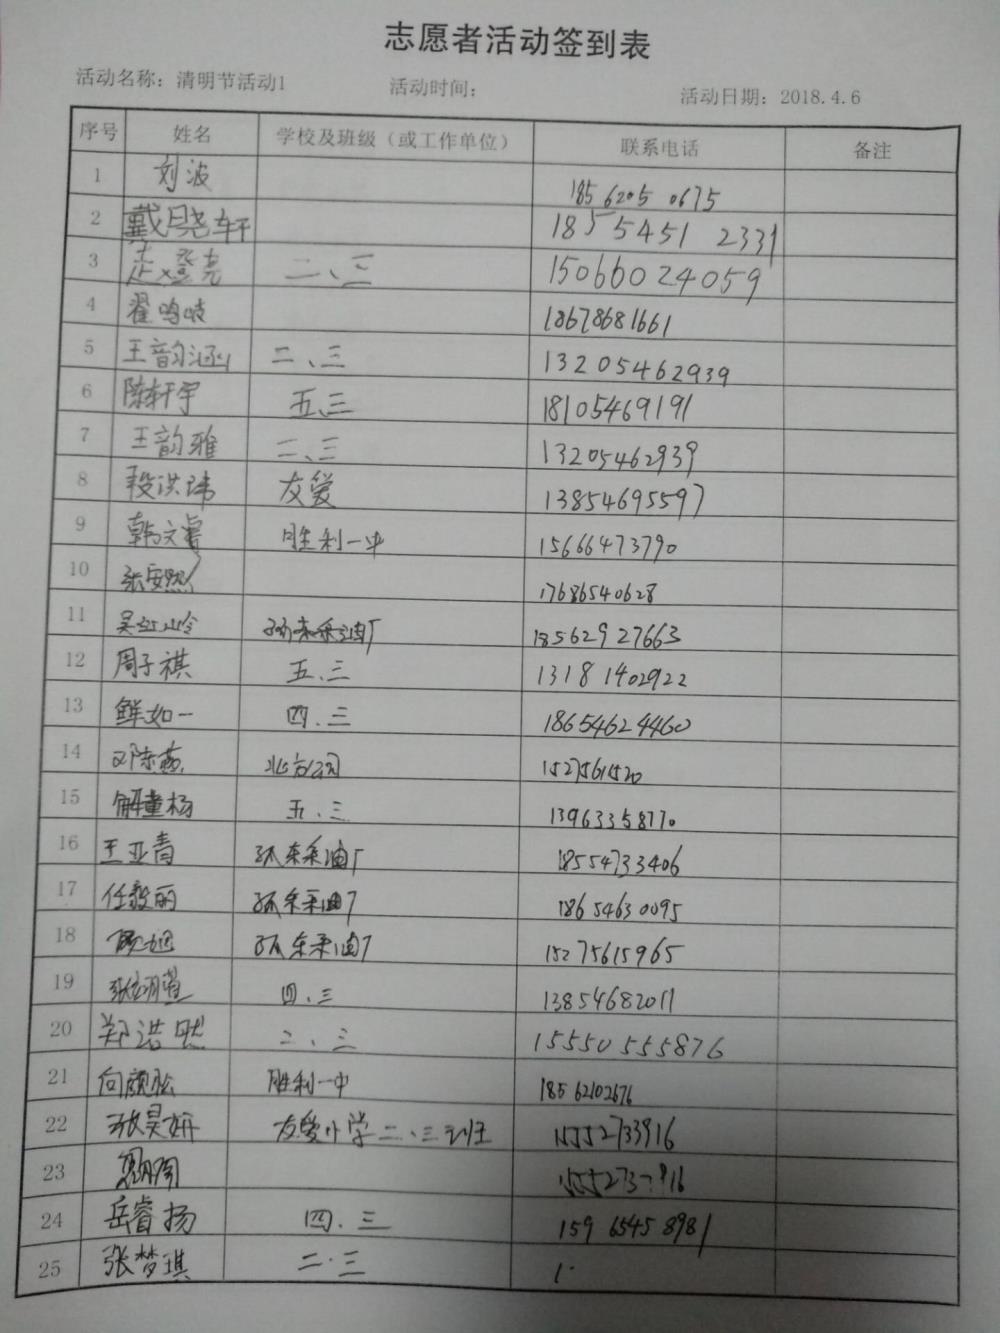 志愿者活动签到表
活动名称：清明节活动1 活动时间： 活动日期：2018.4.6
序号 姓名 学校及班级（或工作单位） 联系电话 备注
1 刘波 185 6205 0675
2 戴晓轩 185 5451 2331
3 登尧 二、三 15066024059
4 翟鸣岐 18678681661
5 王韵涵 二、三 13205462939
6 陈轩宇 五、三 18105469191
7 王韵雅 二、三 13205462939
8 段洪玮 友爱 13854695597
9 韩文睿 胜利一中 15666473790
10 张安然 17686540628
11 吴红岭 孤东采油厂 18562927663
12 周子祺 五、三 13181402922
13 鲜如一 四、三 18654624460
14 1527561520
15 解童杨 五、三 13963358770
16 王亚青 孤东采油厂 18554733406
17 任毅丽 孤东采油厂 18654630095
18 孤东采油厂 15275615965
19 四、三 13854682011
20 郑浩然 二、三 15550555876
21 胜利一中 18562102676
22 张昊妍 友爱小学二、三班 15552733916
23
24 岳睿扬 四、三 159 6545 8981
25 张梦琪 二·三 1·